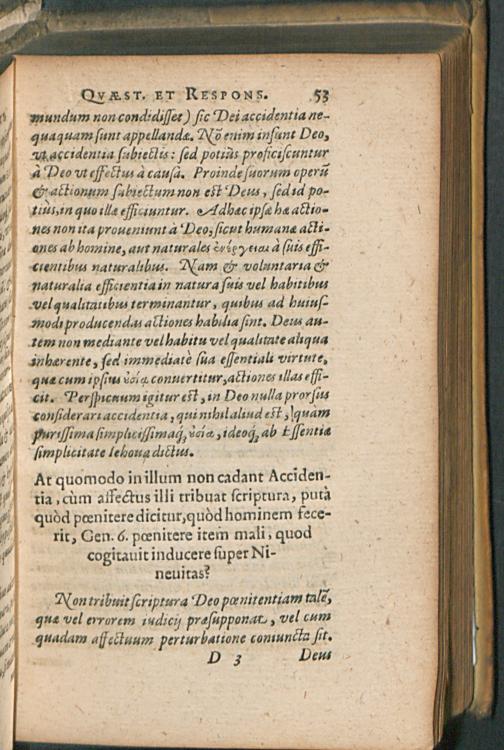 QVÆST. ET RESPONS. 53
mundum non condidisset) sic Dei accidentia ne-
quaquam sunt appellandæ. Nō enim insunt Deo,
vt accidentia subiectis: sed potiùs proficiscuntur
à Deo vt effectus à causa. Proinde suorum operū
& actionum subiectum non est Deus, sed id po-
tiùs, in quo illæ efficiuntur. Adhæc ipsæ hæ actio-
nes non ita proueniunt à Deo, sicut humanæ acti-
ones ab homine, aut naturales ἐνέργειαι à suis effi-
cientibus naturalibus. Nam & voluntaria &
naturalia efficientia in natura suis vel habitibus
vel qualitatibus terminantur, quibus ad huius-
modi producendas actiones habilia sint. Deus au-
tem non mediante vel habitu vel qualitate aliqua
inhærente, sed immediatè sua essentiali virtute,
quæ cum ipsius ὐσίᾳ conuertitur, actiones illas effi-
cit. Perspicuum igitur est, in Deo nulla prorsus
considerari accidentia, qui nihil aliud est, quàm
purissima simplicissimaq́; ὐσία, ideoq́; ab Essentiæ
simplicitate Iehoua dictus.
At quomodo in illum non cadant Acciden-
tia, cùm affectus illi tribuat scriptura, putà
quòd pœnitere dicitur, quòd hominem fece-
rit, Gen. 6. pœnitere item mali, quod
cogitauit inducere super Ni-
neuitas?
Non tribuit scriptura Deo pœnitentiam talē,
quæ vel errorem iudicij præsupponat, vel cum
quadam affectuum perturbatione coniuncta sit.
D 3 Deus